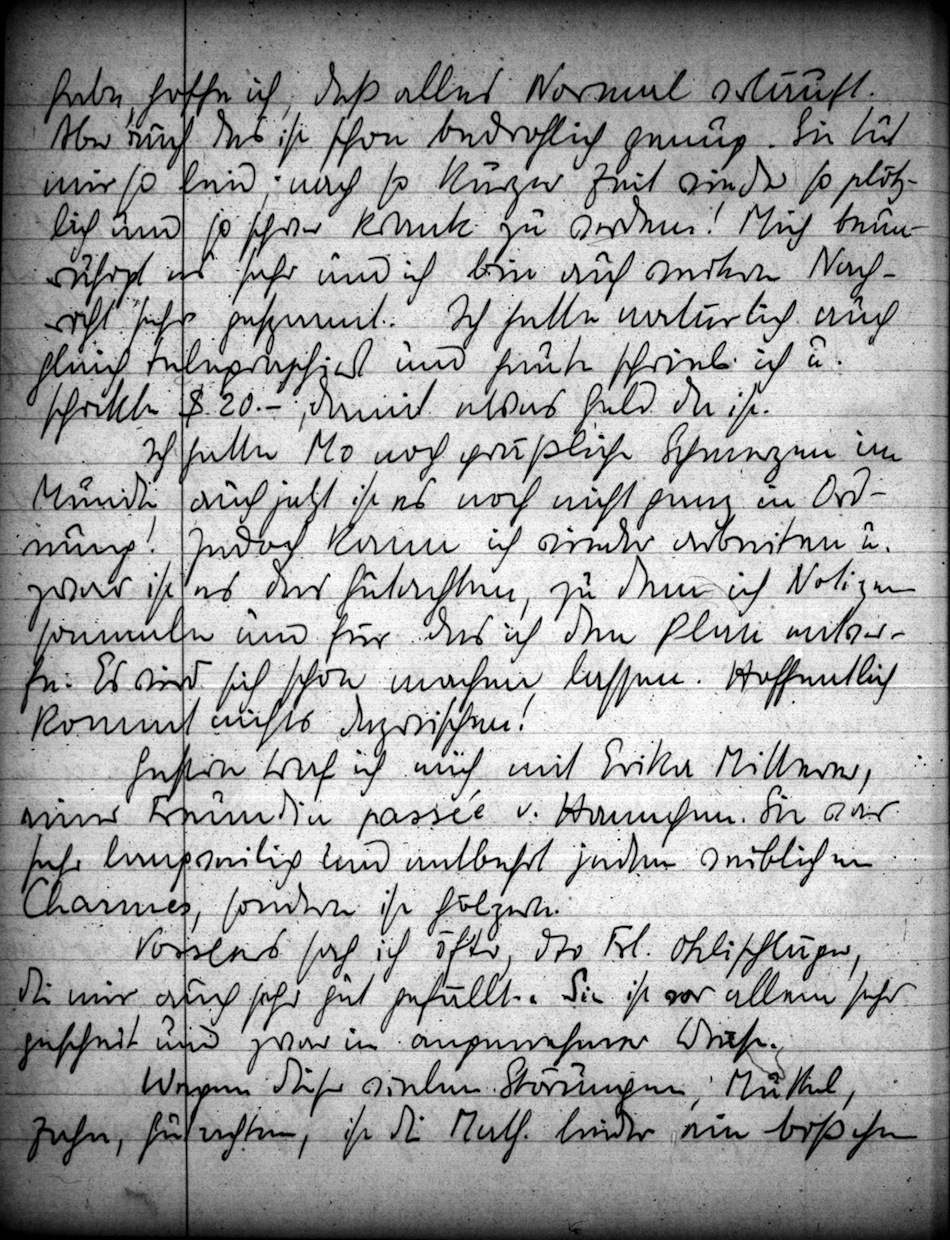 habe, hoffe ich, daß alles Normal verläuft.
Aber auch das ist schon bedrohlich genug. Sie tut
mir so leid; nach so kurzer Zeit wieder so plötz-
lich und so schwer krank zu werden! Mich beun-
ruhigt es sehr und ich bin auf weitere Nach-
richt sehr gespannt. Ich hatte natürlich auch
gleich telegraphiert und heute schrieb ich u.
schickte $ 20.-, damit etwas Geld da ist.
Ich hatte Mo noch gräßliche Schmerzen im
Munde, auch jetzt ist es noch nicht ganz in Ord-
nung! Jedoch kann ich wieder arbeiten u.
zwar ist es das Gutachten, zu dem ich Notizen
sammele und für das ich den Plan entwer-
fe. Es wird sich schon machen lassen. Hoffentlich
kommt nichts dazwischen!
Gestern traf ich mich mit Erika
einer Freundin passée v. Hannchen. Sie war
sehr langweilig und entbehrt jeden weiblichen
Charmes, sondern ist hölzern.
sah ich öfter, dto Frl.
die mir auch sehr gut gefällt. Sie ist vor allem sehr
gescheit und zwar in angenehmer Weise.
Wegen dieser vielen Störungen,
Zahn, Gutachten, ist die Math. leider ein bißchen